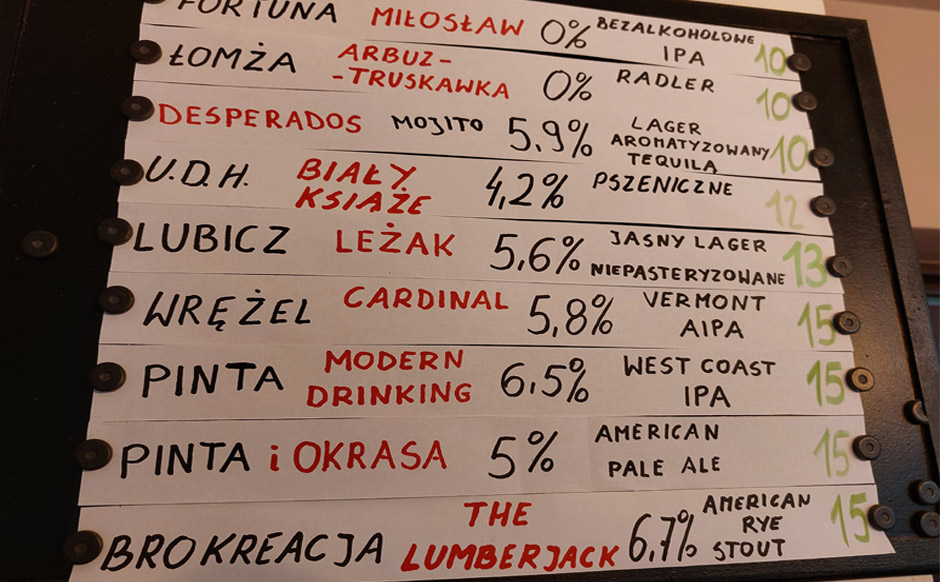 FORTUNA MIŁOSŁAW 0% BEZALKOHOLOWE IPA 10
ŁOMŻA ARBUZ--TRUSKAWKA 0% RADLER 10
DESPERADOS MOJITO 5,9% LAGER AROMATYZOWANY TEQUILĄ 10
U.D.H. BIAŁY KSIĄŻE 4,2% PSZENICZNE 12
LUBICZ LEŻAK 5,6% JASNY LAGER NIEPASTERYZOWANE 13
WRĘŻEL CARDINAL 5,8% VERMONT AIPA 15
PINTA MODERN DRINKING 6,5% WEST COAST IPA 15
PINTA i OKRASA 5% AMERICAN PALE ALE 15
BROKREACJA THE LUMBERJACK 6,7% AMERICAN RYE STOUT 15